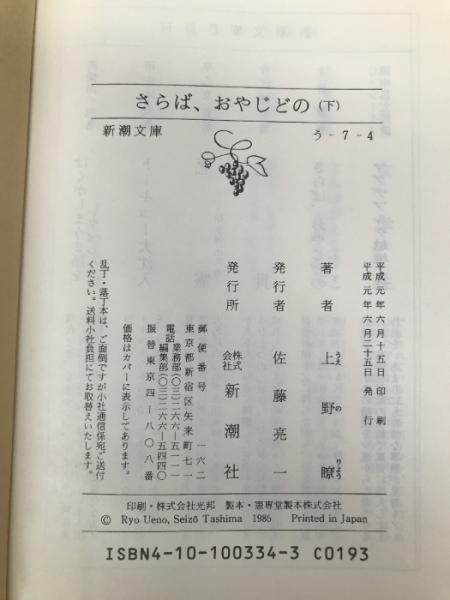 さらば、おやじどの(下)
新潮文庫 う-7-4
平成元年六月十五日 印刷
平成元年六月二十五日 発行
著者 上野瞭
うえ の りょう
発行者 佐藤亮一
発行所 株式会社 新潮社
郵便番号 一六二
東京都新宿区矢来町七一
電話 業務部(〇三)二六六—五一一一
編集部(〇三)二六六—五四四〇
振替東京四—八〇八番
価格はカバーに表示してあります。
乱丁・落丁本は、ご面倒ですが小社通信係宛ご送付
ください。送料小社負担にてお取替えいたします。
印刷・株式会社光邦 製本・憲専堂製本株式会社
© Ryo Ueno, Seizō Tashima 1985 Printed in Japan
ISBN4-10-100334-3 C0193